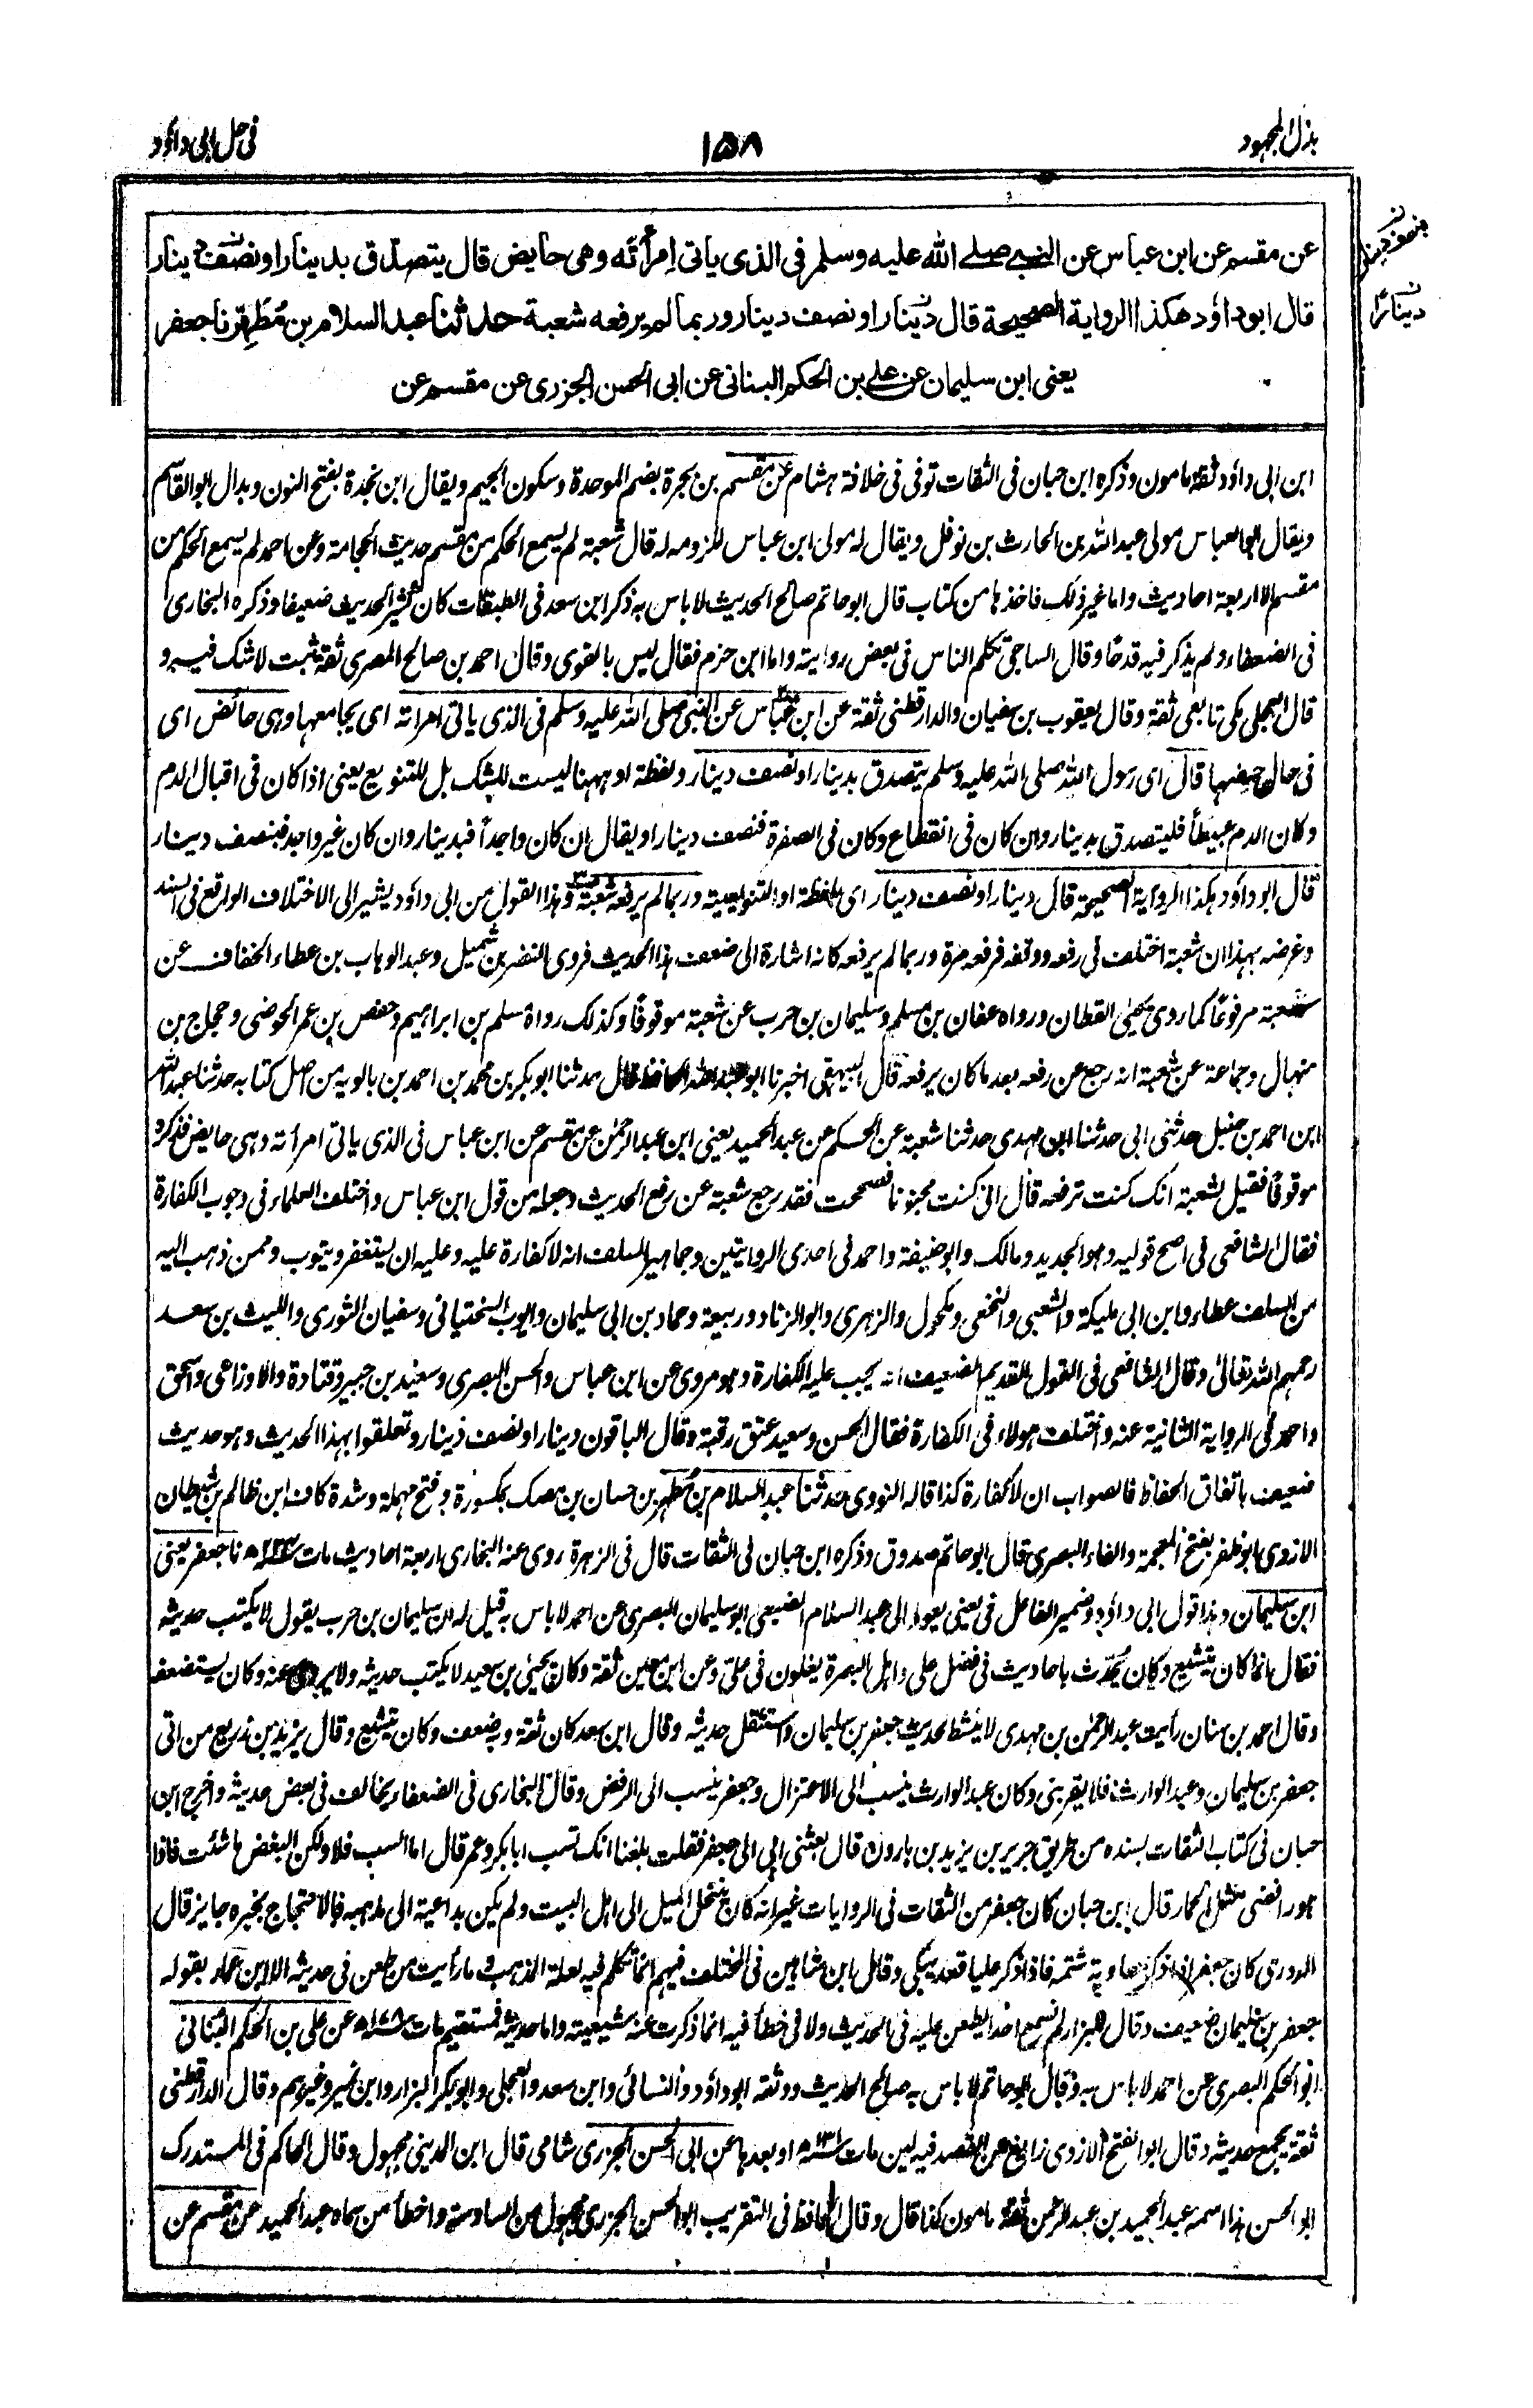 بذل المجهود
١٥٨
فى حل ابى داؤد
بنصف دينار
دينارًا
عن مقسم عن ابن عباس عن النبى صلے الله عليه وسلم فى الذى ياتى امرأته وهى حايض قال يتصدق بدينار او نصف دينار
قال ابو داؤد هكذا الرواية الصحيحة قال دينار او نصف دينار وربما لم يرفعه شعبة حدثنا عبد السلام بن مُطَهِّر نا جعفر
يعنى ابن سليمان عن على بن الحكم البنانى عن ابى الحسن الجزرى عن مقسم عن
ابن ابى داؤد ثقة مامون وذكره ابن حبان فى الثقات توفى فى خلافة هشام عن مقسم بن بجرة بضم الموحدة وسكون الجيم ويقال ابن نجدة بفتح النون وبدال ابو القاسم
ويقال ابو العباس مولى عبد الله بن الحارث بن نوفل ويقال له مولى ابن عباس للزومه له قال شعبة لم يسمع الحكم من مقسم حديث الحجامة وعن احمد لم يسمع الحكم من
مقسم الا اربعة احاديث واما غير ذلك فاخذها من كتاب قال ابو حاتم صالح الحديث لا باس به ذكر ابن سعد فى الطبقات كان كثير الحديث ضعيفا وذكره البخارى
فى الضعفاء ولم يذكر فيه قدحًا وقال الساجى تكلم الناس فى بعض روايته واما ابن حزم فقال ليس بالقوى وقال احمد بن صالح المصرى ثقة ثبت لا شك فيه و
قال العجلى مكى تابعى ثقة وقال يعقوب بن سفيان والدارقطنى ثقة عن ابن عباس عن النبى صلى الله عليه وسلم فى الذى ياتى امراته اى يجامعها وهى حائض اى
فى حال حيضها قال اى رسول الله صلى الله عليه وسلم يتصدق بدينار او نصف دينار ولفظة او ههنا ليست للشك بل للتنويع يعنى اذا كان فى اقبال الدم
وكان الدم عبيطًا فليتصدق بدينار وان كان فى انقطاع وكان فى الصفرة فنصف دينار او يقال ان كان واجدًا فبدينار وان كان غير واجد فبنصف دينار
قال ابو داؤد هكذا الرواية الصحيحة قال دينار او نصف دينار اى بلفظة او التنويعية وربما لم يرفعه شعبة وهذا القول من ابى داؤد يشير الى الاختلاف الواقع فى السند
وغرضه بهذا ان شعبة اختلف فى رفعه ووقفه فرفعه مرة وربما لم يرفعه كانه اشارة الى ضعف هذا الحديث فروى النضر بن شميل وعبد الوهاب بن عطاء الخفاف عن
شعبة مرفوعًا كما روى يحيى القطان ورواه عفان بن مسلم وسليمان بن حرب عن شعبة موقوفًا وكذلك رواه سلم بن ابراهيم وحفص بن عمر الحوضى وحجاج بن
منهال وجماعة عن شعبة انه رجع عن رفعه بعد ما كان يرفعه قال البيهقى اخبرنا ابو عبد الله الحافظ قال حدثنا ابو بكر بن محمد بن احمد بن بالويه من اصل كتابه حدثنا عبد الله
ابن احمد بن حنبل حدثنى ابى حدثنا ابن مهدى حدثنا شعبة عن الحكم عن عبد الحميد يعنى ابن عبد الرحمٰن عن مقسم عن ابن عباس فى الذى ياتى امرأته وهى حايض فذكره
موقوفًا فقيل لشعبة انك كنت ترفعه قال انى كنت مجنونا فصححت فقد رجع شعبة عن رفع الحديث وجعله من قول ابن عباس واختلف العلماء فى وجوب الكفارة
فقال الشافعى فى اصح قوليه وهو الجديد ومالك وابو حنيفة واحمد فى احدى الروايتين وجماهير السلف انه لا كفارة عليه وعليه ان يستغفر ويتوب وممن ذهب اليه
من السلف عطاء وابن ابى مليكة والشعبى والنخعى ومكحول والزهرى وابو الزناد وربيعة وحماد بن ابى سليمان وايوب السختيانى وسفيان الثورى والليث بن سعد
رحمهم الله تعالىٰ وقال الشافعى فى القول القديم الضعيف انه يجب عليه الكفارة وهو مروى عن ابن عباس والحسن البصرى وسعيد بن جبير وقتادة والاوزاعى واسحق
واحمد فى الرواية الثانية عنه واختلف هولاء فى الكفارة فقال الحسن وسعيد عتق رقبة وقال الباقون دينار او نصف دينار وتعلقوا بهذا الحديث وهو حديث
ضعيف باتفاق الحفاظ فالصواب ان لا كفارة كذا قاله النووى حدثنا عبد السلام بن مُطهر بن حسان بن مصك بمكسورة وفتح مهملة وشدة كاف ابن ظالم بن شيطان
الازدى ابو ظفر بفتح المعجمة والفاء البصرى قال ابو حاتم صدوق وذكره ابن حبان فى الثقات قال فى الزهرة روى عنه البخارى اربعة احاديث مات سنة ٢٢٤ه نا جعفر يعنى
ابن سليمان وهذا قول ابى داؤد وضمير الفاعل فى يعنى يعود الى عبد السلام الضبعى ابو سليمان البصرى عن احمد لا باس به قيل له ان سليمان بن حرب يقول لا يكتب حديثه
فقال انما كان يتشيع وكان يُحدّث باحاديث فى فضل على واهل البصرة يغلون فى على وعن ابن معين ثقة وكان يحيى بن سعيد لا يكتب حديثه ولا يروى عنه وكان يستضعفه
وقال احمد بن سنان رأيت عبد الرحمٰن بن مهدى لا ينشط لحديث جعفر بن سليمان واستثقل حديثه وقال ابن سعد كان ثقة وبه ضعف وكان يتشيع وقال يزيد بن زريع من اتى
جعفر بن سليمان وعبد الوارث فلا يقربنى وكان عبد الوارث ينسب الى الاعتزال وجعفر ينسب الى الرفض وقال البخارى فى الضعفاء يخالف فى بعض حديثه واخرج ابن
حبان فى كتاب الثقات بسنده من طريق جرير بن يزيد بن هارون قال بعثنى ابى الى جعفر فقلت بلغنا انك تسب ابا بكر وعمر قال اما السب فلا ولكن البغض ما شئت فاذا
هو رافضى مثل الحمار قال ابن حبان كان جعفر من الثقات فى الروايات غير انه كان ينتحل الميل الى اهل البيت ولم يكن بداعية الى مذهبه فالاحتجاج بخبره جايز قال
الدورى كان جعفر اذا ذكر معاوية شتمه فاذا ذكر عليا قعد يبكى وقال ابن شاهين فى المختلف فيهم انما تكلم فيه لعلة المذهب وما رأيت من طعن فى حديثه الا ابن عمار بقوله
جعفر بن سليمان ضعيف وقال البزار لم نسمع احدا يطعن عليه فى الحديث ولا فى خطأ فيه انما ذكرت عنه شيعيته واما حديثه فمستقيم مات سنة ١٧٨ه عن على بن الحكم البنانى
ابو الحكم البصرى عن احمد لا باس به وقال ابو حاتم لا باس به صالح الحديث ووثقه ابو داؤد والنسائى وابن سعد والعجلى وابو بكر البزار وابن نمير وغيرهم وقال الدارقطنى
ثقة يجمع حديثه وقال ابو الفتح الازدى زائغ عن القصد فيه لين مات سنة ١٣١ه او بعدها عن ابى الحسن الجزرى شامى قال ابن المدينى مجهول وقال الحاكم فى المستدرك
ابو الحسن هذا اسمه عبد الحميد بن عبد الرحمن ثقة مامون كذا قال وقال الحافظ فى التقريب ابو الحسن الجزرى مجهول من السادسة واخطأ من سماه عبد الحميد عن مقسم عن